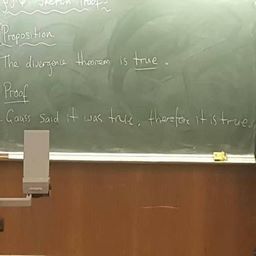 Sketch Proof.
Proposition
The divergence theorem is true.
Proof
Gauss said it was true, therefore it is true.